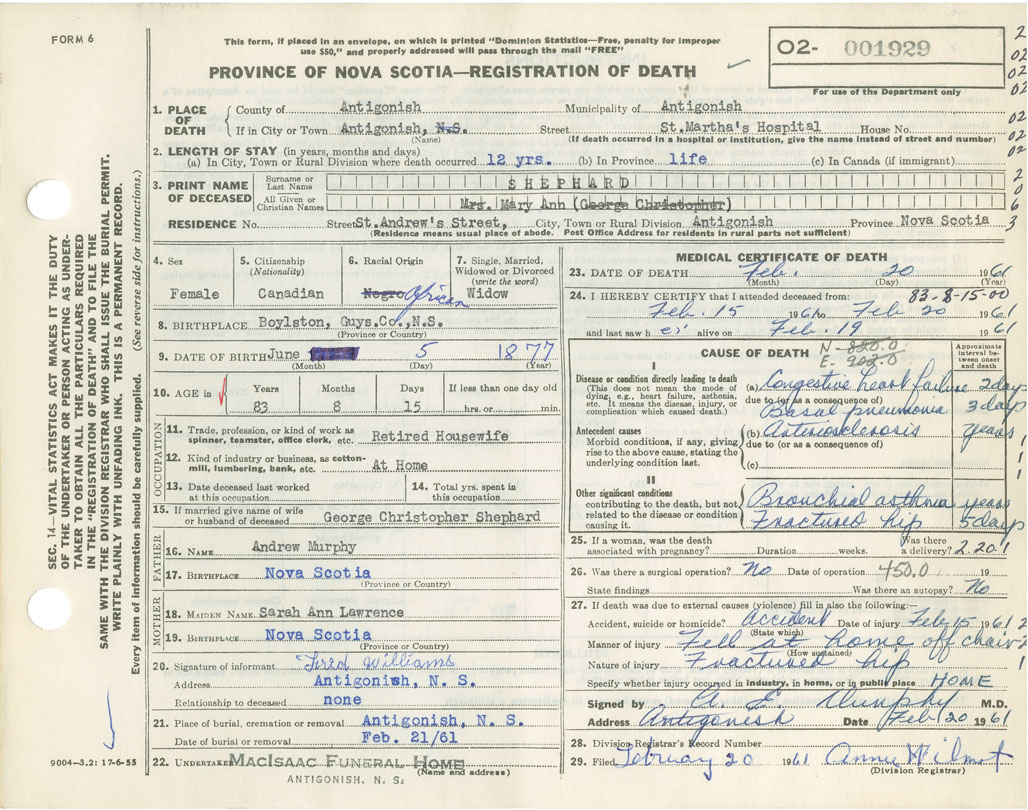 FORM 6
This form, if placed in an envelope, on which is printed "Dominion Statistics—Free, penalty for improper
use $50," and properly addressed will pass through the mail "FREE"
PROVINCE OF NOVA SCOTIA—REGISTRATION OF DEATH
O2- 001929
For use of the Department only
1. PLACE OF DEATH
County of Antigonish Municipality of Antigonish
If in City or Town Antigonish, N.S. Street St.Martha's Hospital House No.
(Name) (If death occurred in a hospital or institution, give the name instead of street and number)
2. LENGTH OF STAY (in years, months and days)
(a) In City, Town or Rural Division where death occurred 12 yrs. (b) In Province life (c) In Canada (if immigrant)
3. PRINT NAME OF DECEASED
Surname or Last Name SHEPHARD
All Given or Christian Names Mrs. Mary Ann (George Christopher)
RESIDENCE No. Street St.Andrew's Street, City, Town or Rural Division Antigonish Province Nova Scotia
(Residence means usual place of abode. Post Office Address for residents in rural parts not sufficient)
4. Sex Female
5. Citizenship (Nationality) Canadian
6. Racial Origin Negro African
7. Single, Married, Widowed or Divorced (write the word) Widow
8. BIRTHPLACE Boylston, Guys.Co.,N.S.
(Province or Country)
9. DATE OF BIRTH June 5 1877
(Month) (Day) (Year)
10. AGE in Years Months Days If less than one day old
83 8 15 hrs. or min.
OCCUPATION
11. Trade, profession, or kind of work as spinner, teamster, office clerk, etc. Retired Housewife
12. Kind of industry or business, as cotton-mill, lumbering, bank, etc. At Home
13. Date deceased last worked at this occupation
14. Total yrs. spent in this occupation
15. If married give name of wife or husband of deceased George Christopher Shephard
FATHER
16. NAME Andrew Murphy
17. BIRTHPLACE Nova Scotia
(Province or Country)
MOTHER
18. MAIDEN NAME Sarah Ann Lawrence
19. BIRTHPLACE Nova Scotia
(Province or Country)
20. Signature of informant Fred Williams
Address Antigonish, N. S.
Relationship to deceased none
21. Place of burial, cremation or removal Antigonish, N. S.
Date of burial or removal Feb. 21/61
22. UNDERTAKER MacIsaac Funeral Home
(Name and address)
ANTIGONISH, N. S.
MEDICAL CERTIFICATE OF DEATH
23. DATE OF DEATH Feb. 20 1961
(Month) (Day) (Year)
24. I HEREBY CERTIFY that I attended deceased from: 83-8-15-00
Feb. 15 1961 to Feb 20 1961
and last saw h er alive on Feb. 19 1961
CAUSE OF DEATH
N-820.0
E-902.0
Approximate interval between onset and death
I
Disease or condition directly leading to death
(This does not mean the mode of dying, e.g., heart failure, asthenia, etc. It means the disease, injury, or complication which caused death.)
(a) Congestive heart failure 2 days
due to (or as a consequence of)
Basal pneumonia 3 days
Antecedent causes
Morbid conditions, if any, giving rise to the above cause, stating the underlying condition last.
(b) Arteriosclerosis years
due to (or as a consequence of)
(c)
II
Other significant conditions
contributing to the death, but not related to the disease or condition causing it.
Bronchial asthma years
Fractured hip 5 days
25. If a woman, was the death associated with pregnancy? Duration weeks. Was there a delivery? 2.20.1
26. Was there a surgical operation? No Date of operation 450.0 19
State findings Was there an autopsy? No
27. If death was due to external causes (violence) fill in also the following:
Accident, suicide or homicide? Accident Date of injury Feb 15 1961
(State which)
Manner of injury Fell at home off chair
(How sustained)
Nature of injury Fractured hip
Specify whether injury occurred in industry, in home, or in public place HOME
Signed by A. E. Dunphy M.D.
Address Antigonish Date Feb 20 1961
28. Division Registrar's Record Number
29. Filed February 20 1961 Annie Wilmot
(Division Registrar)
SEC. 14—VITAL STATISTICS ACT MAKES IT THE DUTY
OF THE UNDERTAKER OR PERSON ACTING AS UNDER-
TAKER TO OBTAIN ALL THE PARTICULARS REQUIRED
IN THE "REGISTRATION OF DEATH" AND TO FILE THE
SAME WITH THE DIVISION REGISTRAR WHO SHALL ISSUE THE BURIAL PERMIT.
WRITE PLAINLY WITH UNFADING INK. THIS IS A PERMANENT RECORD.
Every item of information should be carefully supplied. (See reverse side for instructions.)
9004—3.2: 17-6-55
2
02
02
02
02
02
2
0
6
3
1
1
1
2
2
1